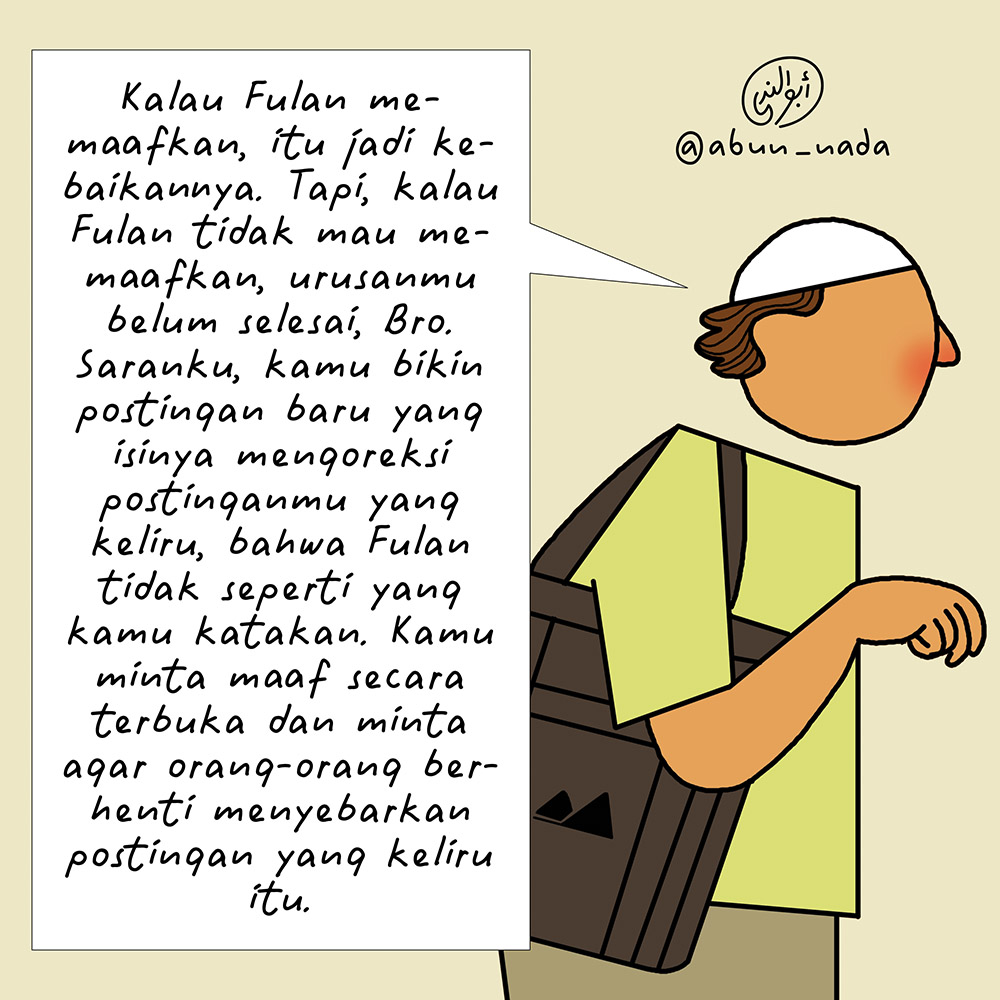 Kalau Fulan me-
maafkan, itu jadi ke-
baikannya. Tapi, kalau
Fulan tidak mau me-
maafkan, urusanmu
belum selesai, Bro.
Saranku, kamu bikin
postingan baru yang
isinya mengoreksi
postinganmu yang
keliru, bahwa Fulan
tidak seperti yang
kamu katakan. Kamu
minta maaf secara
terbuka dan minta
agar orang-orang ber-
henti menyebarkan
postingan yang keliru
itu.
أبو الندى
@abun_nada